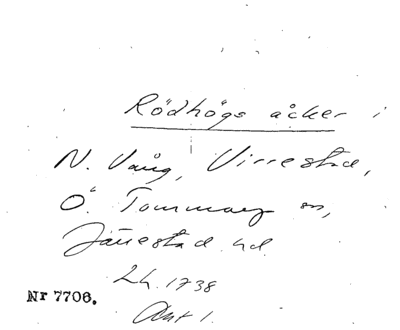 Rödhögs åcker i
N. Vång, Virrestad,
Ö. Tommarp sn,
Järrestad hd.
LH. 1738
Akt 1.
Nr 7706.